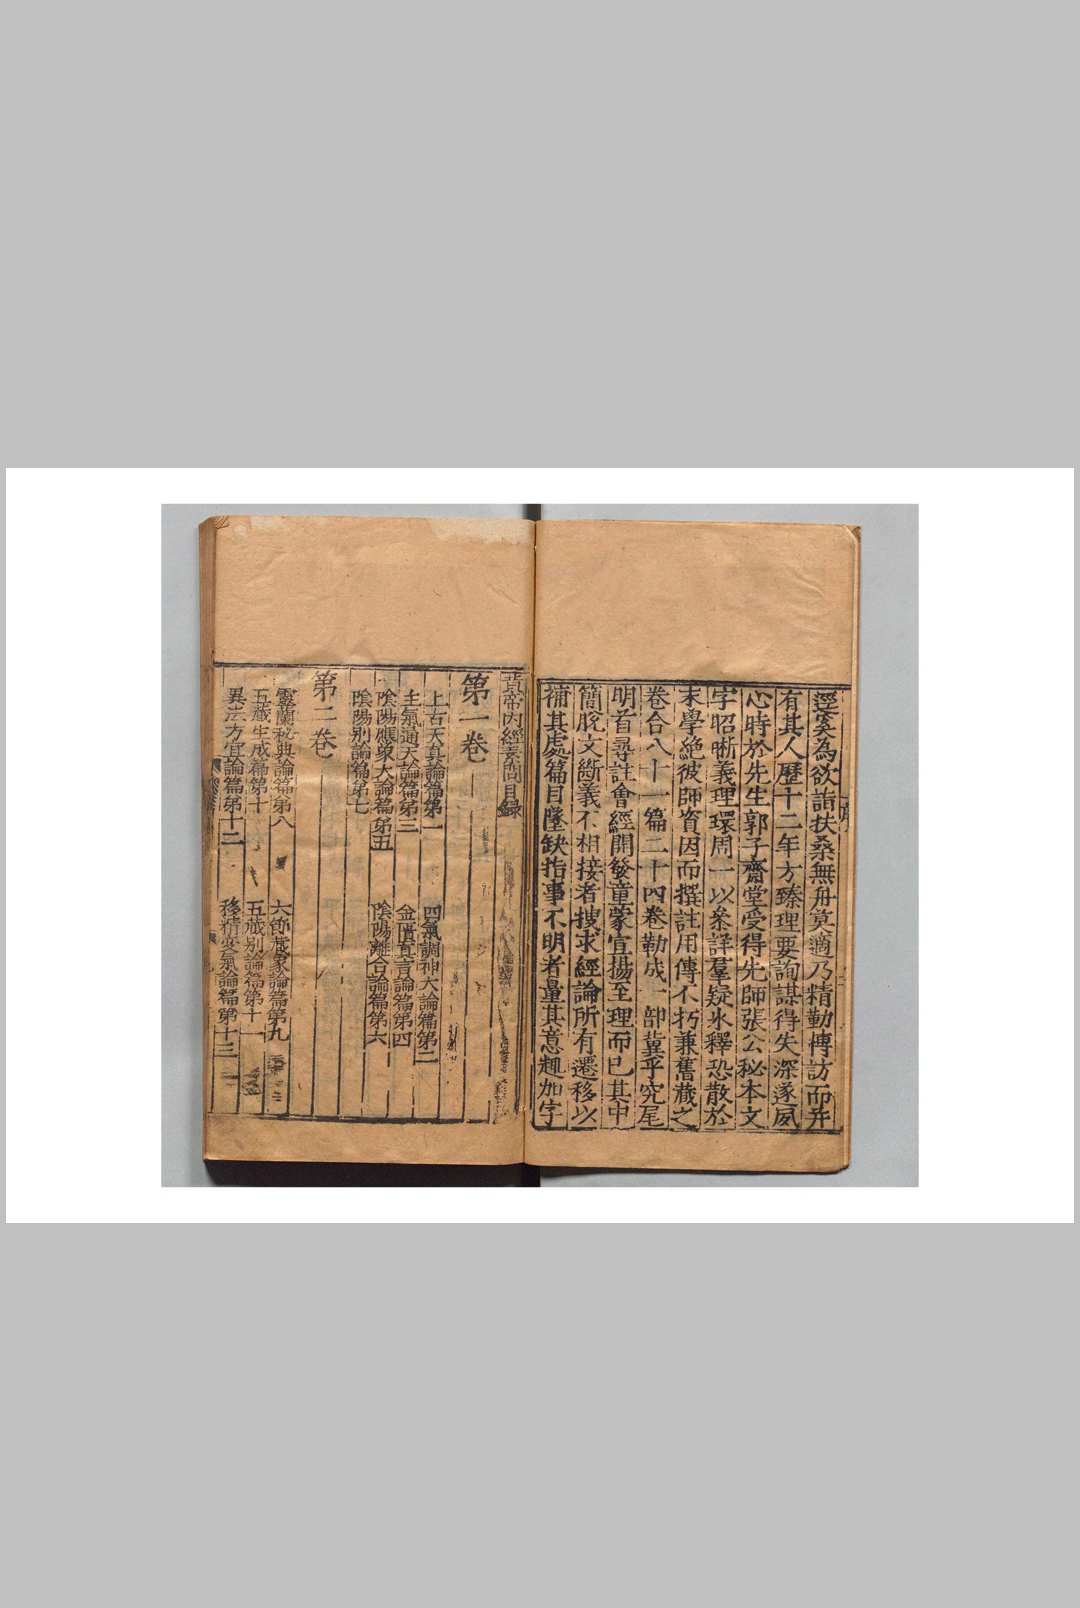 逕奚為欲詣扶桑無舟莫適乃精勤博訪而并
有其人歷十二年方臻理要詢謀得失深遂夙
心時於先生郭子齋堂受得先師張公秘本文
字昭晰義理環周一以參詳羣疑氷釋恐散於
末學絕彼師資因而撰註用傳不朽兼舊藏之
卷合八十一篇二十四卷勒成一部冀乎究尾
明首尋註會經開發童蒙宣揚至理而已其中
簡脫文斷義不相接者搜求經論所有遷移以
補其處篇目墜缺指事不明者量其意趣加字
黃帝內經素問目録
第一卷
上古天真論篇第一 四氣調神大論篇第二
生氣通天論篇第三 金匱真言論篇第四
陰陽應象大論篇第五 陰陽離合論篇第六
陰陽別論篇第七
第二卷
靈蘭秘典論篇第八 六節藏象論篇第九
五藏生成篇第十 五藏別論篇第十一
異法方宜論篇第十二 移精变氣論篇第十三